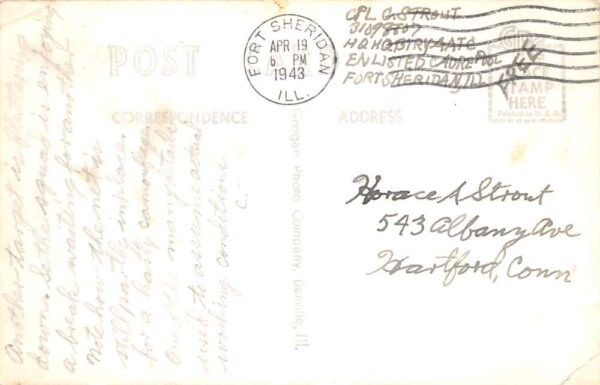 CPL C. STROUT
31098607
HQ HQ BTRY AATC
ENLISTED CADRE POOL
FORT SHERIDAN ILL
FREE
FORT SHERIDAN
APR 19
6 PM
1943
ILL.
POST
STAMP
HERE
CORRESPONDENCE
ADDRESS
Grogan Photo Company, Danville, Ill.
Horace A Strout
543 Albany Ave
Hartford, Conn
Another target is
down. So the squad is enjoying
a break waiting for another
Note how the net is
still partly in place
for a hasty camouflage.
One of the many
used to assimilate actual
working conditions
C.